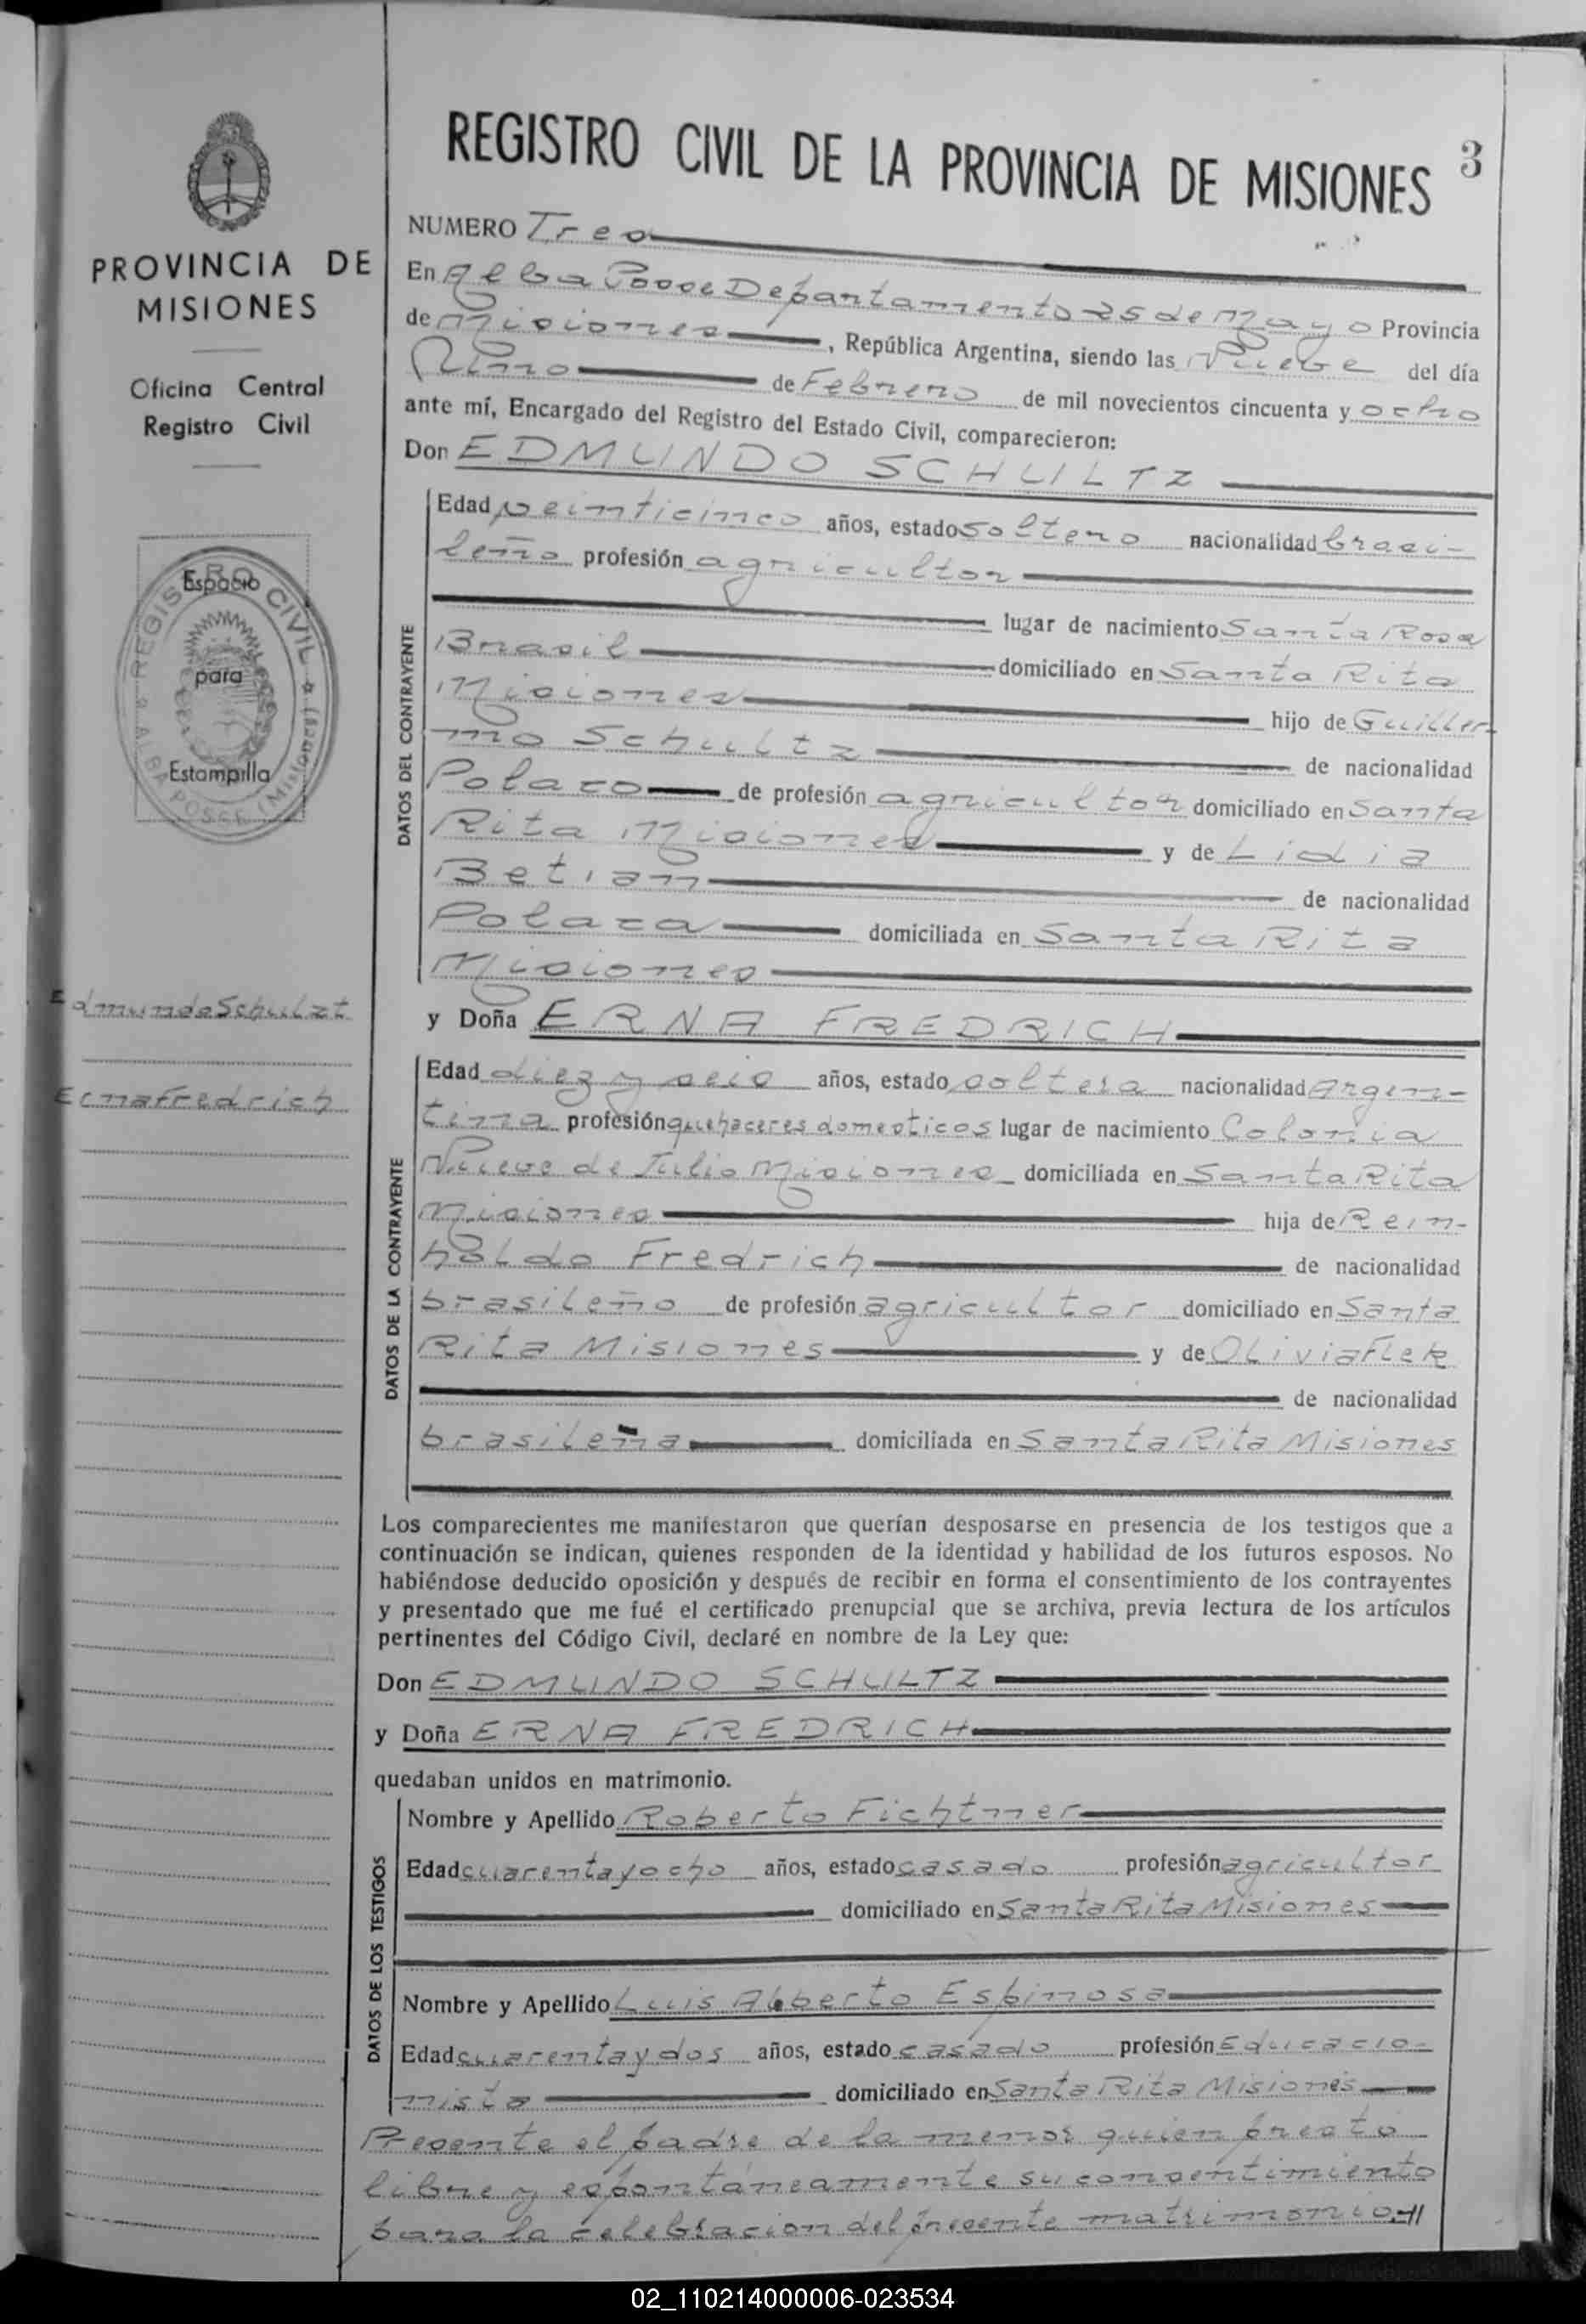 REGISTRO CIVIL DE LA PROVINCIA DE MISIONES 3
PROVINCIA DE
MISIONES
Oficina Central
Registro Civil
REGISTRO CIVIL
ALBA POSSE (Misiones)
Espacio
para
Estampilla
Edmundo Schulzt
Erna Fredrich
NUMERO Tres
En Alba Posse Departamento 25 de Mayo Provincia
de Misiones, República Argentina, siendo las Nueve del día
Uno de Febrero de mil novecientos cincuenta y ocho
ante mí, Encargado del Registro del Estado Civil, comparecieron:
Don EDMUNDO SCHULTZ
DATOS DEL CONTRAYENTE
Edad veinticinco años, estado soltero nacionalidad brasi-
leño profesión agricultor
lugar de nacimiento Santa Rosa
Brasil domiciliado en Santa Rita
Misiones hijo de Guiller-
mo Schultz de nacionalidad
Polaco de profesión agricultor domiciliado en Santa
Rita Misiones y de Lidia
Betian de nacionalidad
Polaca domiciliada en Santa Rita
Misiones
y Doña ERNA FREDRICH
DATOS DE LA CONTRAYENTE
Edad diez y seis años, estado soltera nacionalidad Argen-
tina profesión quehaceres domesticos lugar de nacimiento Colonia
Nueve de Julio Misiones domiciliada en Santa Rita
Misiones hija de Rein-
holdo Fredrich de nacionalidad
brasileño de profesión agricultor domiciliado en Santa
Rita Misiones y de Olivia Flek
de nacionalidad
brasileña domiciliada en Santa Rita Misiones
Los comparecientes me manifestaron que querían desposarse en presencia de los testigos que a
continuación se indican, quienes responden de la identidad y habilidad de los futuros esposos. No
habiéndose deducido oposición y después de recibir en forma el consentimiento de los contrayentes
y presentado que me fué el certificado prenupcial que se archiva, previa lectura de los artículos
pertinentes del Código Civil, declaré en nombre de la Ley que:
Don EDMUNDO SCHULTZ
y Doña ERNA FREDRICH
quedaban unidos en matrimonio.
DATOS DE LOS TESTIGOS
Nombre y Apellido Roberto Fichtner
Edad cuarenta y ocho años, estado casado profesión agricultor
domiciliado en Santa Rita Misiones
Nombre y Apellido Luis Alberto Espinosa
Edad cuarenta y dos años, estado casado profesión Educacio-
nista domiciliado en Santa Rita Misiones
Presente el padre de la menor quien presto
libre y espontáneamente su consentimiento
para la celebracion del presente matrimonio.-//
02_110214000006-023534